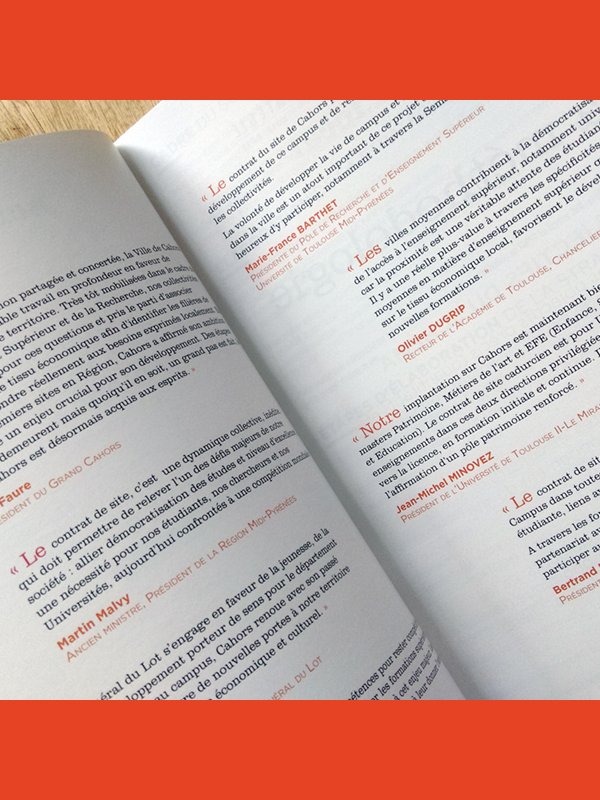 ion partagée et concertée, la Ville de Cahors
ble travail en profondeur en faveur de
e territoire. Très tôt mobilisées dans le cadre
Supérieur et de la Recherche, nos collectivités
pour ces questions et pris le parti d'associer
e tissu économique afin d'identifier les filières de
ndre réellement aux besoins exprimés localement.
emiers sites en Région. Cahors a affirmé son ambition
e un enjeu crucial pour son développement. Des étapes
demeurent mais quoiqu'il en soit, un grand pas est fait
hors est désormais acquis aux esprits. »
Faure
ÉSIDENT DU GRAND CAHORS
« Le contrat de site, c'est une dynamique collective, inédite,
qui doit permettre de relever l'un des défis majeurs de notre
société : allier démocratisation des études et niveau d'excellence
une nécessité pour nos étudiants, nos chercheurs et nos
Universités, aujourd'hui confrontés à une compétition mondiale
Martin Malvy
ANCIEN MINISTRE, PRÉSIDENT DE LA RÉGION MIDI-PYRÉNÉES
éral du Lot s'engage en faveur de la jeunesse, de la
développement porteur de sens pour le département
au campus, Cahors renoue avec son passé
re de nouvelles portes à notre territoire
économique et culturel. »
NÉRAL DU LOT
pétences pour rester
les formations
à cet enjeu
à leur
« Le contrat du site de Cahors
développement de ce campus et de
les collectivités.
La volonté de développer la vie de campus et
dans la ville est un atout important de ce projet
heureux d'y participer, notamment à travers la
Marie-France BARTHET
PRÉSIDENTE DU PÔLE DE RECHERCHE ET D'ENSEIGNEMENT SUPÉRIEUR
UNIVERSITÉ DE TOULOUSE MIDI-PYRÉNÉES
« Les villes moyennes contribuent à la démocratisa
de l'accès à l'enseignement supérieur, notamment univ
car la proximité est une véritable attente des étudian
Il y a une réelle plus-value à travers les spécificités
moyennes en matière d'enseignement supérieur
sur le tissu économique local, favorisent le déve
nouvelles formations. »
Olivier DUGRIP
RECTEUR DE L'ACADÉMIE DE TOULOUSE, CHANCELIE
« Notre implantation sur Cahors est maintenant bie
masters Patrimoine, Métiers de l'art et EFE (Enfance,
et Education). Le contrat de site cadurcien est pour l
enseignements dans ces deux directions privilégiée
vers la licence, en formation initiale et continue.
l'affirmation d'un pôle patrimoine renforcé. »
Jean-Michel MINOVEZ
PRÉSIDENT DE L'UNIVERSITÉ DE TOULOUSE II-LE MIRA
« Le contrat de si
Campus dans toute
étudiante, liens a
A travers les fo
partenariat av
participer a
Bertrand
PRÉSIDENT